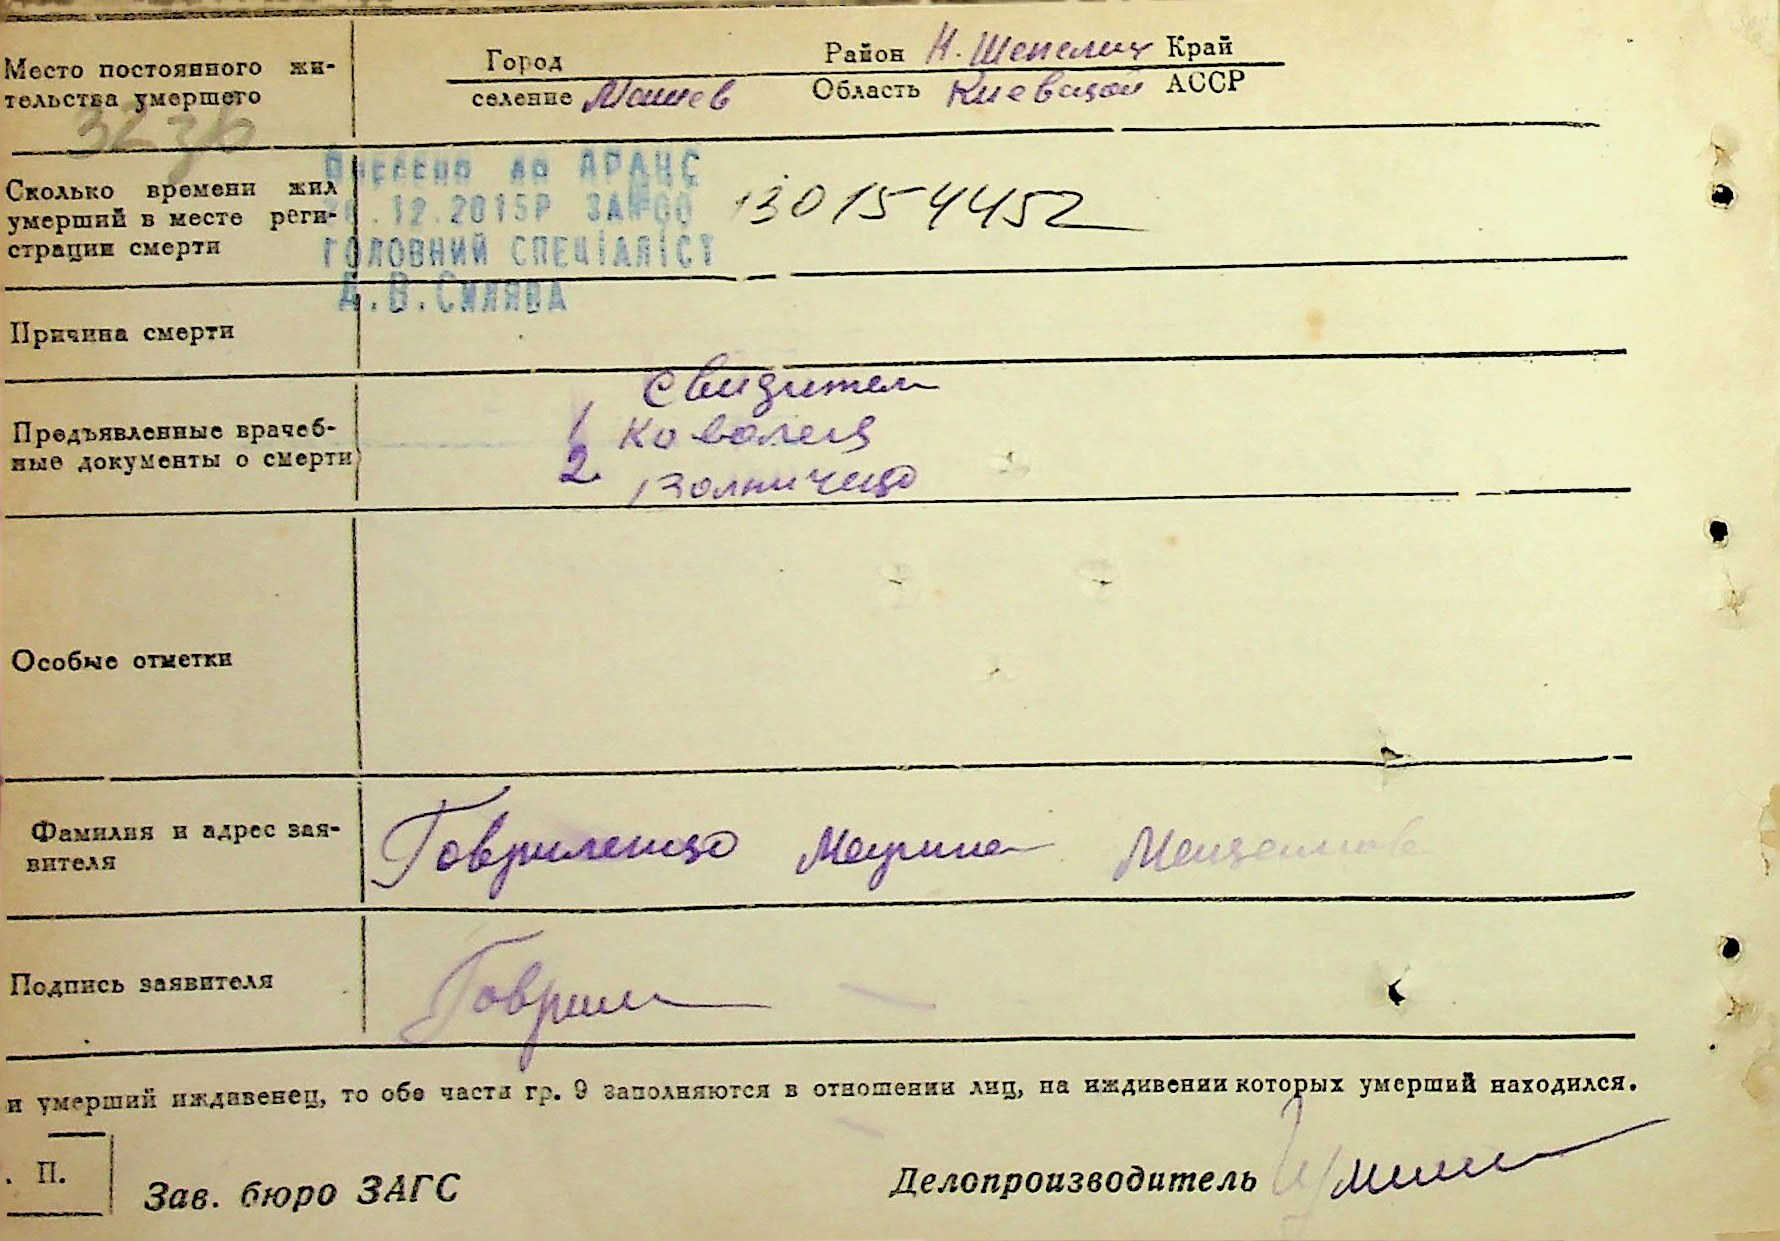 Место постоянного жи-
тельства умершего
Город Район Н. Шепелич Край
селение Машев Область Киевской АССР
323б
Сколько времени жил
умерший в месте реги-
страции смерти
Внесено до ДРАЦС
.12.2015Р ЗА №00 130154452
ГОЛОВНИЙ СПЕЦІАЛІСТ
А.В.Силява
Причина смерти
Предъявленные врачеб-
ные документы о смерти
Свидители
1 Коваленя
2.
Особые отметки
Фамилия и адрес зая-
вителя
Говриленко Марина
Подпись заявителя
Говрил
и умерший иждивенец, то обе части гр. 9 заполняются в отношении лиц, на иждивении которых умерший находился.
. П.
Зав. бюро ЗАГС Делопроизводитель